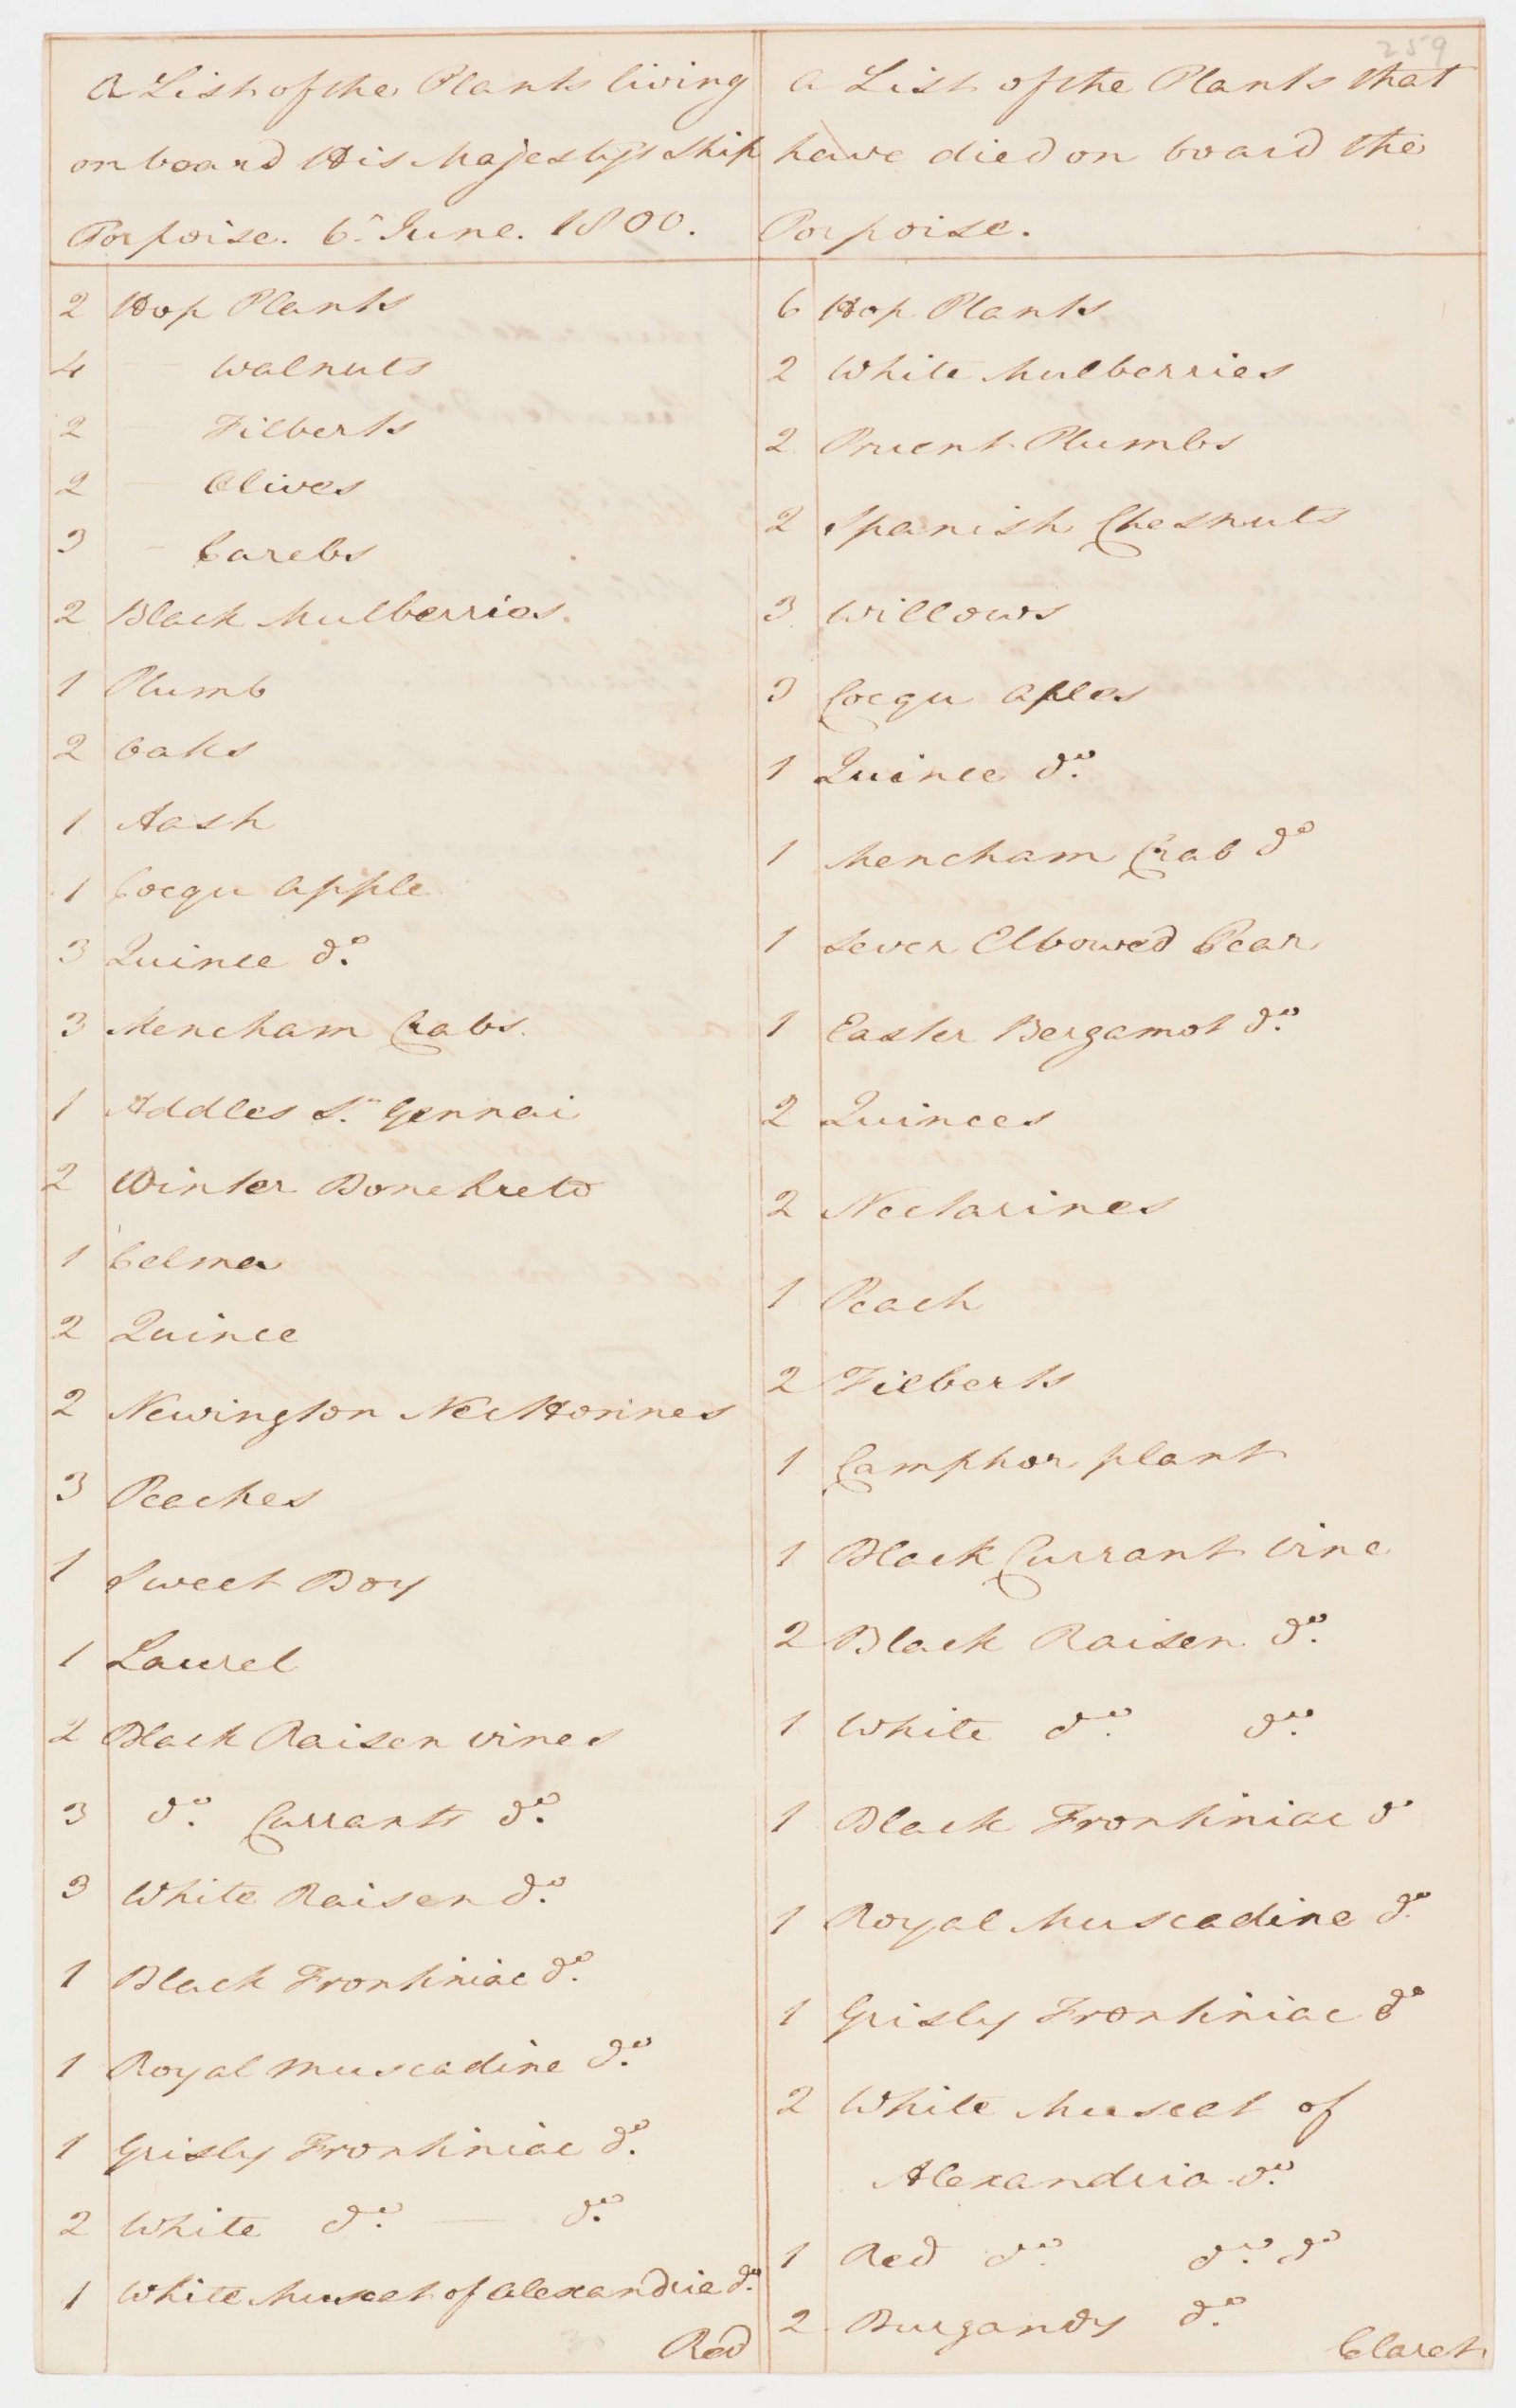 259
A List of the Plants living
on board His Majestys Ship
Porpoise. 6th June. 1800.
2 Hop Plants
4 — Walnuts
2 — Filberts
2 — Olives
3 — Carebs
2 Black Mulberries.
1 Plumb
2 Oaks
1 Aash
1 Cocqu Apple
3 Quince do.
3 Mencham Crabs.
1 Addles St. Gennai
2 Winter Bonchreto
1 Colmer
2 Quince
2 Newington Necttorines
3 Peaches
1 Sweet Boy
1 Laurel
2 Black Raisen vines
3 do. Currants do.
3 White Raisen do.
1 Black Frontiniac do.
1 Royal Muscadine do.
1 Grisly Frontiniac do.
2 White do. — do.
1 White Muscat of Alexandria do.
Red
A List of the Plants that
have died on board the
Porpoise.
6 Hop Plants
2 White Mulberries
2 Pruent Plumbs
2 Spanish Chesnuts
3 Willows
3 Cocqu Aples
1 Quince do.
1 Mencham Crab do
1 Sever Elbowed Pear
1 Easter Bergamot do.
2 Quinces
2 Nectarines
1 Peach
2 Filberts
1 Camphor plant
1 Black Currant vine
2 Black Raisen do.
1 White do. do.
1 Black Frontiniac do
1 Royal Muscadine do.
1 Grisly Frontiniac do
2 White Muscat of
Alexandria do.
1 Red do. do. do
2 Burgandy do.
Claret